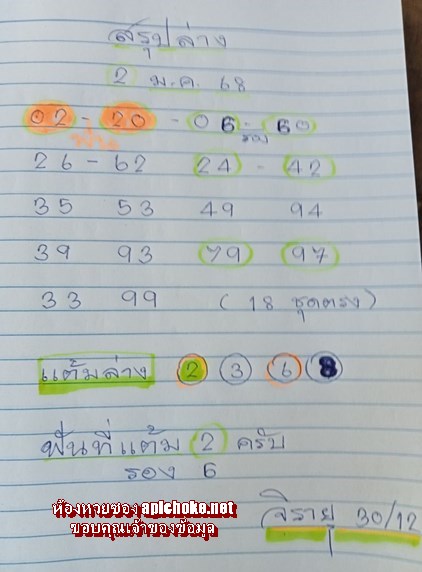 สรุปล่าง
2 ม.ค. 68
02 - 20 - 06 - 60
ฟัน รอง
26 - 62 24 - 42
35 53 49 94
39 93 79 97
33 99 (18 ชุดตรง)
แต้มล่าง 2 3 6 8
ฟันที่แต้ม 2 ครับ
รอง 6
จิรายุ 30/12
ห้องหวยซอง apichoke.net
ขอบคุณเจ้าของข้อมูล